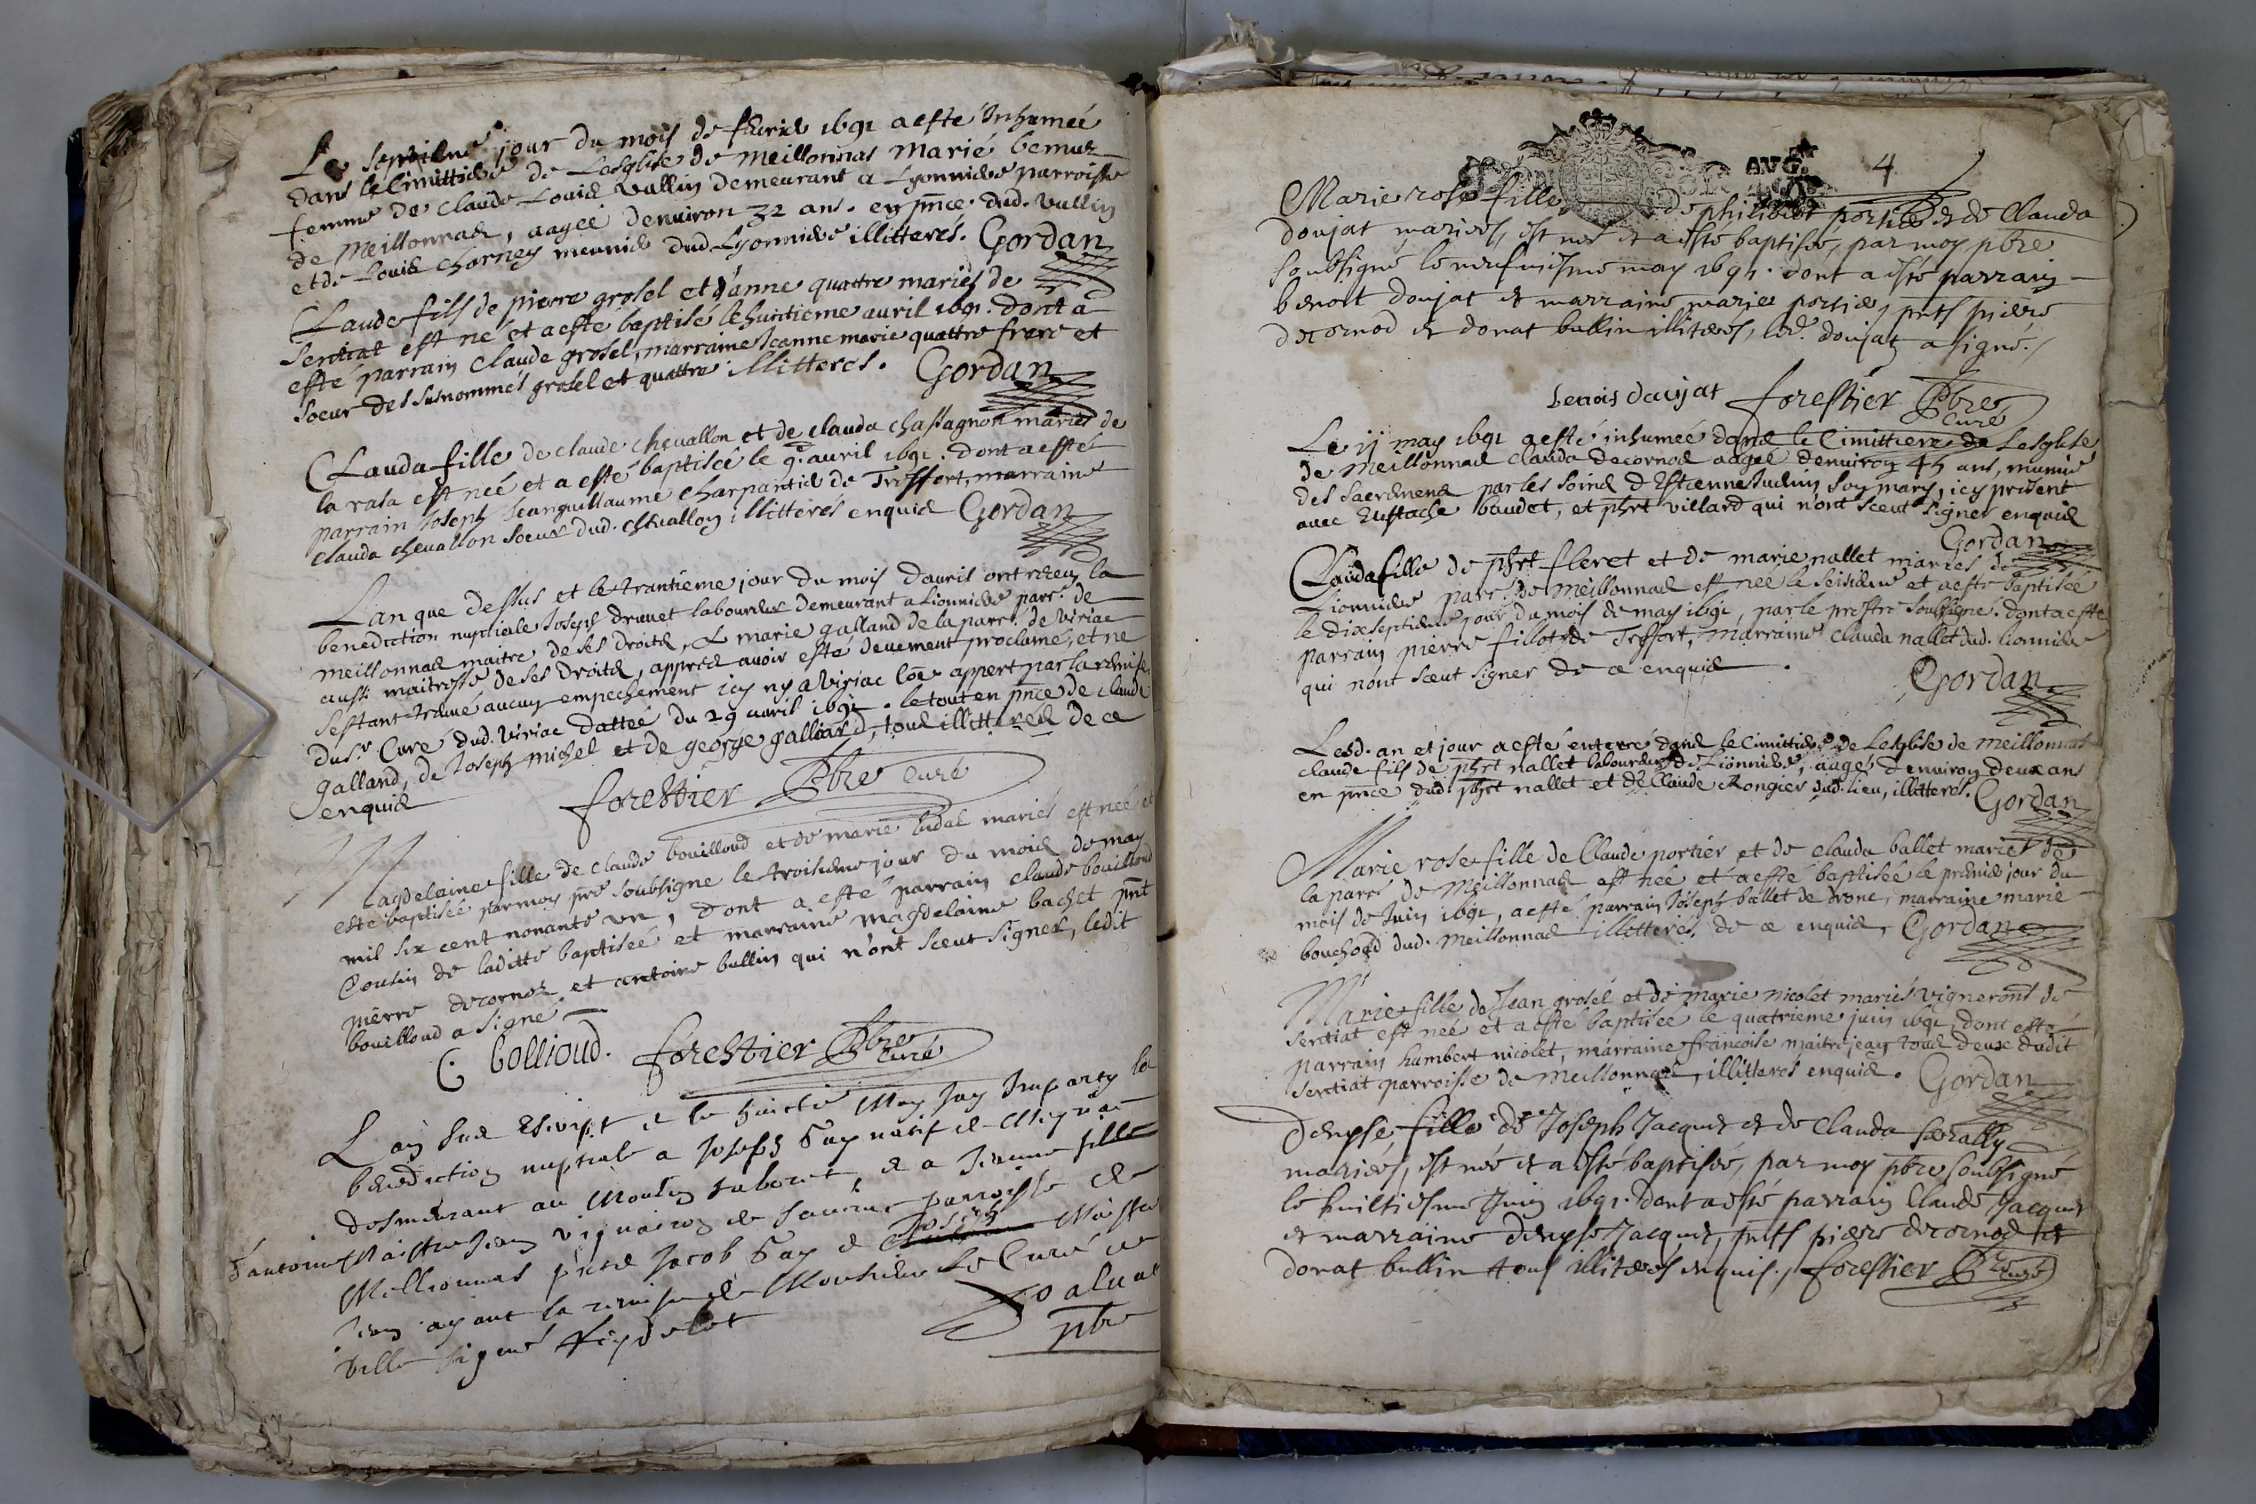 Le septieme jour du mois de febvrier 1691 a esté Inhumeé
dans le Cimittiere de Lesglise de meillonnas Marie bemur
femme de Claude Louis Vullin demeurant a Lyonniere parroisse
de Meillonnas, aageé denviron 32 ans. en pnce. dud. Vullin
et de Louis Charney meunier dud Lyonniere illitterés. Gordan
Claude fils de pierre grosel et d'anne quattre mariés de
Sertiat est né et a esté baptisé le huictieme avril 1691. dont a
esté parrain Claude grosel, marraine Jeanne marie quattre frere et
soeur des susnommés grosel et quattre illitterés. Gordan
Clauda fille de claude chevallon et de clauda chassagnon mariés de
la rasa est neé et a esté baptiseé le 9e. avril 1691. dont a esté
parrain Joseph Jeanguillaume charpantier de Treffort, marraine
clauda chevallon soeur dud. chevallon illitterés enquis Gordan
Lan que dessus et le trantieme jour du mois davril ont receu la
benediction nuptiale Joseph druuet laboureur demeurant a Lionniere parr. de
meillonnas maitre de ses droits, & marie galland de la parr. de viriac
aussi maitresse de ses droits, appres avoir esté deuement proclamé, et ne
sestant trouué aucun empechement icy ny a Viriac coe appert par la remise
du sr. Cure dud. Viriac datteé du 29 avril 1691. le tout en pnce de claude
galland, de Joseph michel et de george galliard, tous illitterés de ce
enquis
forestier Pbre curé
Magdelaine fille de claude bouilloud et de marie vidal mariés est neé et
esté baptisée par moy pre soubsigne le troisieme jour du mois de may
mil six cent nonante un, dont a esté parrain claude bouilloud
Cousin de laditte baptiseé et marraine magdelaine bachet pnt
pierre decornod et antoine bullin qui n'ont sceut signer, ledit
bouilloud a signé
C. bollioud. forestier Pbre curé
L an sus escript et le huictie May Jay Imparty la
benediction nuptiale a Joseph Fay natif de
desmeurant au Moulin, et a Jeanne fille
d'antoine Maistre Jean vigneron de parroisse de
Meillonnas pnts Jacob Fay et Joseph Maistre
Jean ayant la remise de Monsieur Le Curé de
ville signé
pbre
AVG.
4
Marie rose fille de philibert portier et de Clauda
doujat mariés, est neé et a esté baptisée, par moy pbre
soubsigné le neufuiesme may 1691. dont a esté parrain
benoit doujat et marraine marie portier, pnts pierre
decornod et donat bullin illiterés, led. doujat a signé./
benois daujat forestier Pbre Curé
Le 11 may 1691 a esté inhumeé dans le Cimittiere de Lesglise
de Meillonnas Clauda decornod aageé denviron 45 ans, munie
des sacremens par les soins d'Estienne Juslin son mary, icy present
avec Eustache baudet, et phrt villard qui n'ont sceut signer enquis
Gordan
Clauda fille de phrt fleret et de marie nallet mariés de
Lionniere parr. de Meillonnas est neé le seisieme et a esté baptiseé
le dixseptieme jour du mois de may 1691, par le prestre soussigné. dont a esté
parrain pierre fillot de Treffort, marraine Clauda nallet dud. Lionniere
qui nont sceut signer de ce enquis. Gordan
Lesd. an et jour a esté enterre dans le Cimittiere de Lesglise de meillonnas
claude fils de phrt nallet laboureur de Lionniere, aagé denviron deux ans
en pnce dud. phrt nallet et de Claude Rongier dud. lieu, illitterés. Gordan
Marie rose fille de Claude portier et de clauda ballet mariés de
la parr. de Meillonnas est neé et a esté baptiseé le premier jour du
mois de Juin 1691, a esté parrain Joseph ballet de drone, marraine marie
bouchord dud. Meillonnas illitterés, de ce enquis, Gordan
Marie fille de Jean grosel et de marie nicolet mariés vignerons de
sertiat est neé et a esté baptiseé le quatrieme juin 1691 dont esté
parrain humbert nicolet, marraine francoise maitrejean tous deux dudit
sertiat parroisse de Meillonnas, illitterés enquis. Gordan
Denyse, fille de Joseph Jacquet et de Clauda serally
mariés, est neé et a esté baptisée, par moy pbre soubsigné
le huictiesme Juin 1691. dont a esté parrain Claude Jacquet
et marraine denyse Jacquet, pnts pierre decornod et
donat bullin tous illiterés enquis., forestier Pbre curé